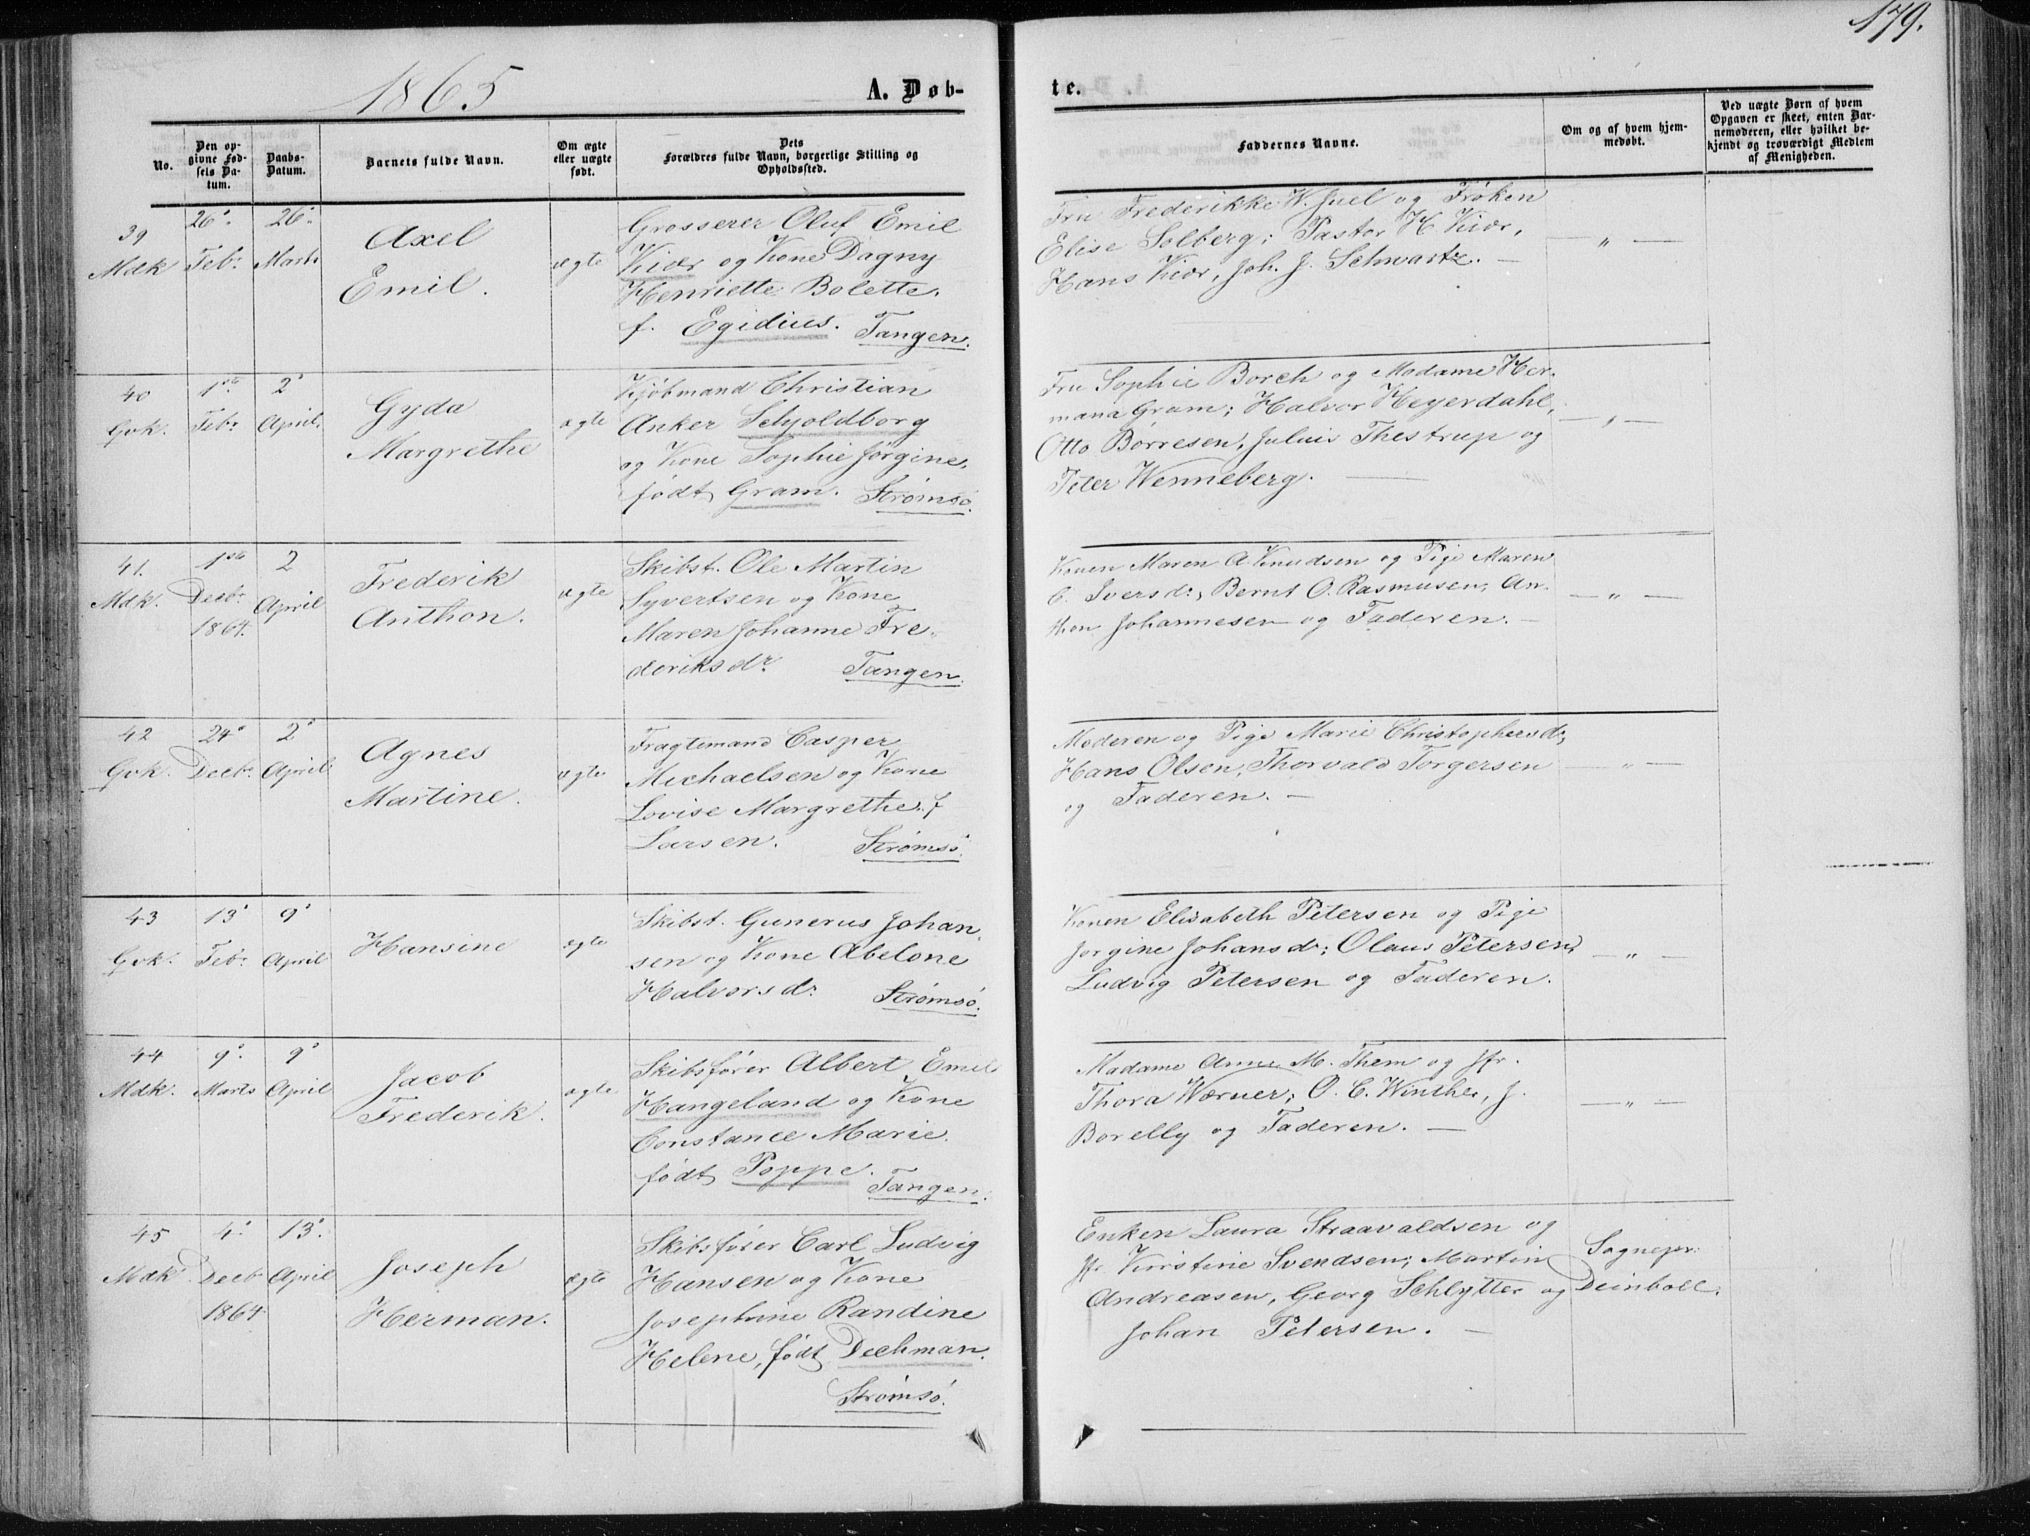 179.
1865
A. Døb-
te.
No.
Den op-
givne Fød-
sels Da-
tum.
Daabs-
Datum.
Barnets fulde Navn.
Om ægte
eller uægte
født.
Dets
Forældres fulde Navn, borgerlige Stilling og
Opholdssted.
Faddernes Navne.
Om og af hvem hjem-
medøbt.
Ved uægte Børn af hvem
Opgaven er skeet, enten Bar-
nemoderen, eller hvilket be-
kjendt og troværdigt Medlem
af Menigheden.
39
Mdk
26de
Febr.
26de
Marts
Axel
Emil.
ægte
Grosserer Oluf Emil
Kiær og Kone Dagny
Henriette Bolette.
f. Egidius. Tangen.
Fru Frederikke W. Juel og Frøken
Elise Solberg; Pastor H. Kiær,
Hans Kiær, Joh. J. Schwartz. —
— „ —
40
Gvk.
1ste
Febr.
2de
April.
Gyda
Margrethe
ægte
Kjøbmand Christian
Anker Schjoldborg
og Kone Sophie Jørgine.
født Gram. Strømsø.
Fru Sophie Borch og Madame Her-
mana Gram; Halvor Heyerdahl,
Otto Børresen, Julius Thestrup og
Peter Wenneberg. —
— „ —
41.
Mdk.
1ste
Decbr.
1864.
2
April
Frederik
Anthon.
ægte
Skibst. Ole Martin
Syvertsen og Kone
Maren Johanne Fre-
deriksdr. Tangen.
Konen Maren A. Knudsen og Pige Maren
C. Iversdr, Bernt O. Rasmusen, An-
thon Johannesen og Faderen. —
— „ —
42
Gvk.
24de
Decbr.
2de
April
Agnes
Martine.
ægte
Fragtemand Casper
Michaelsen og Kone
Lovise Margrethe f
Larsen. Strømsø.
Moderen og Pige Marie Christophersdr,
Hans Olsen, Thorvald Torgersen
og Faderen. —
— „ —
43
Gvk.
13de
Febr.
9de
April
Hansine
ægte
Skibst. Gunerus Johan-
sen og Kone Abelone
Halvorsdr. Strømsø.
Konen Elisabeth Petersen og Pige
Jorgine Johansdr; Olaus Petersen,
Ludvig Petersen og Faderen.
— „ —
44
Mdk.
9de
Marts
9de
April
Jacob
Frederik.
ægte
Skibsfører Albert Emil
Hangeland og Kone
Constance Marie.
født Poppe. Tangen.
Madame Anne M. Them og Jfr.
Thora Wærner; O. C. Winther, J.
Borelly og Faderen. —
— „ —
45
Mdk.
4de
Decb
1864
13de
April
Joseph
Herman.
ægte
Skibsfører Carl Ludvig
Hansen og Kone
Josephine Randine
Helene, født Dechman.
Strømsø.
Enken Laura Straavaldsen og
Jfr. Kirstine Svendsen; Martin
Andreasen, Georg Schlytter og
Johan Petersen. —
Sognepr.
Deinboll.